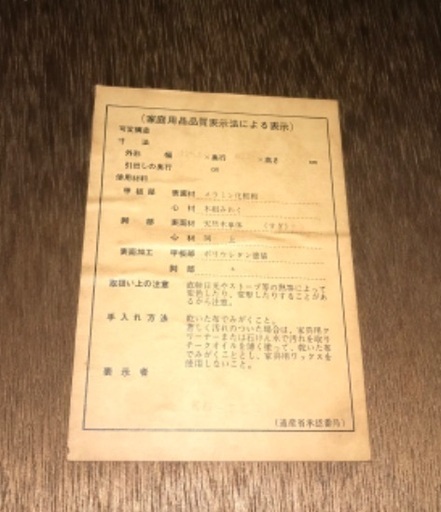 （家庭用品品質表示法による表示）
可変構造
寸　法
外形　幅　×奥行　×高さ　㎝
引出しの奥行　㎝
使用材料
甲板部　表面材　メラミン化粧板
心材　木組みわく
胴部　表面材　天然木単体
心材　同上
表面加工　甲板部　ポリウレタン塗装
胴部　〃
取扱い上の注意　直射日光やストーブ等の熱等によって
変色したり、変形したりすることがあ
るから注意。
手入れ方法　乾いた布でみがくこと。
著しく汚れのついた場合は、家具用ク
リーナーまたは石けん水で汚れを取り
チークオイルを薄く塗って、乾いた布
でみがくこととし、家具用ワックスを
使用しないこと。
表示者
（通産省承認番号）